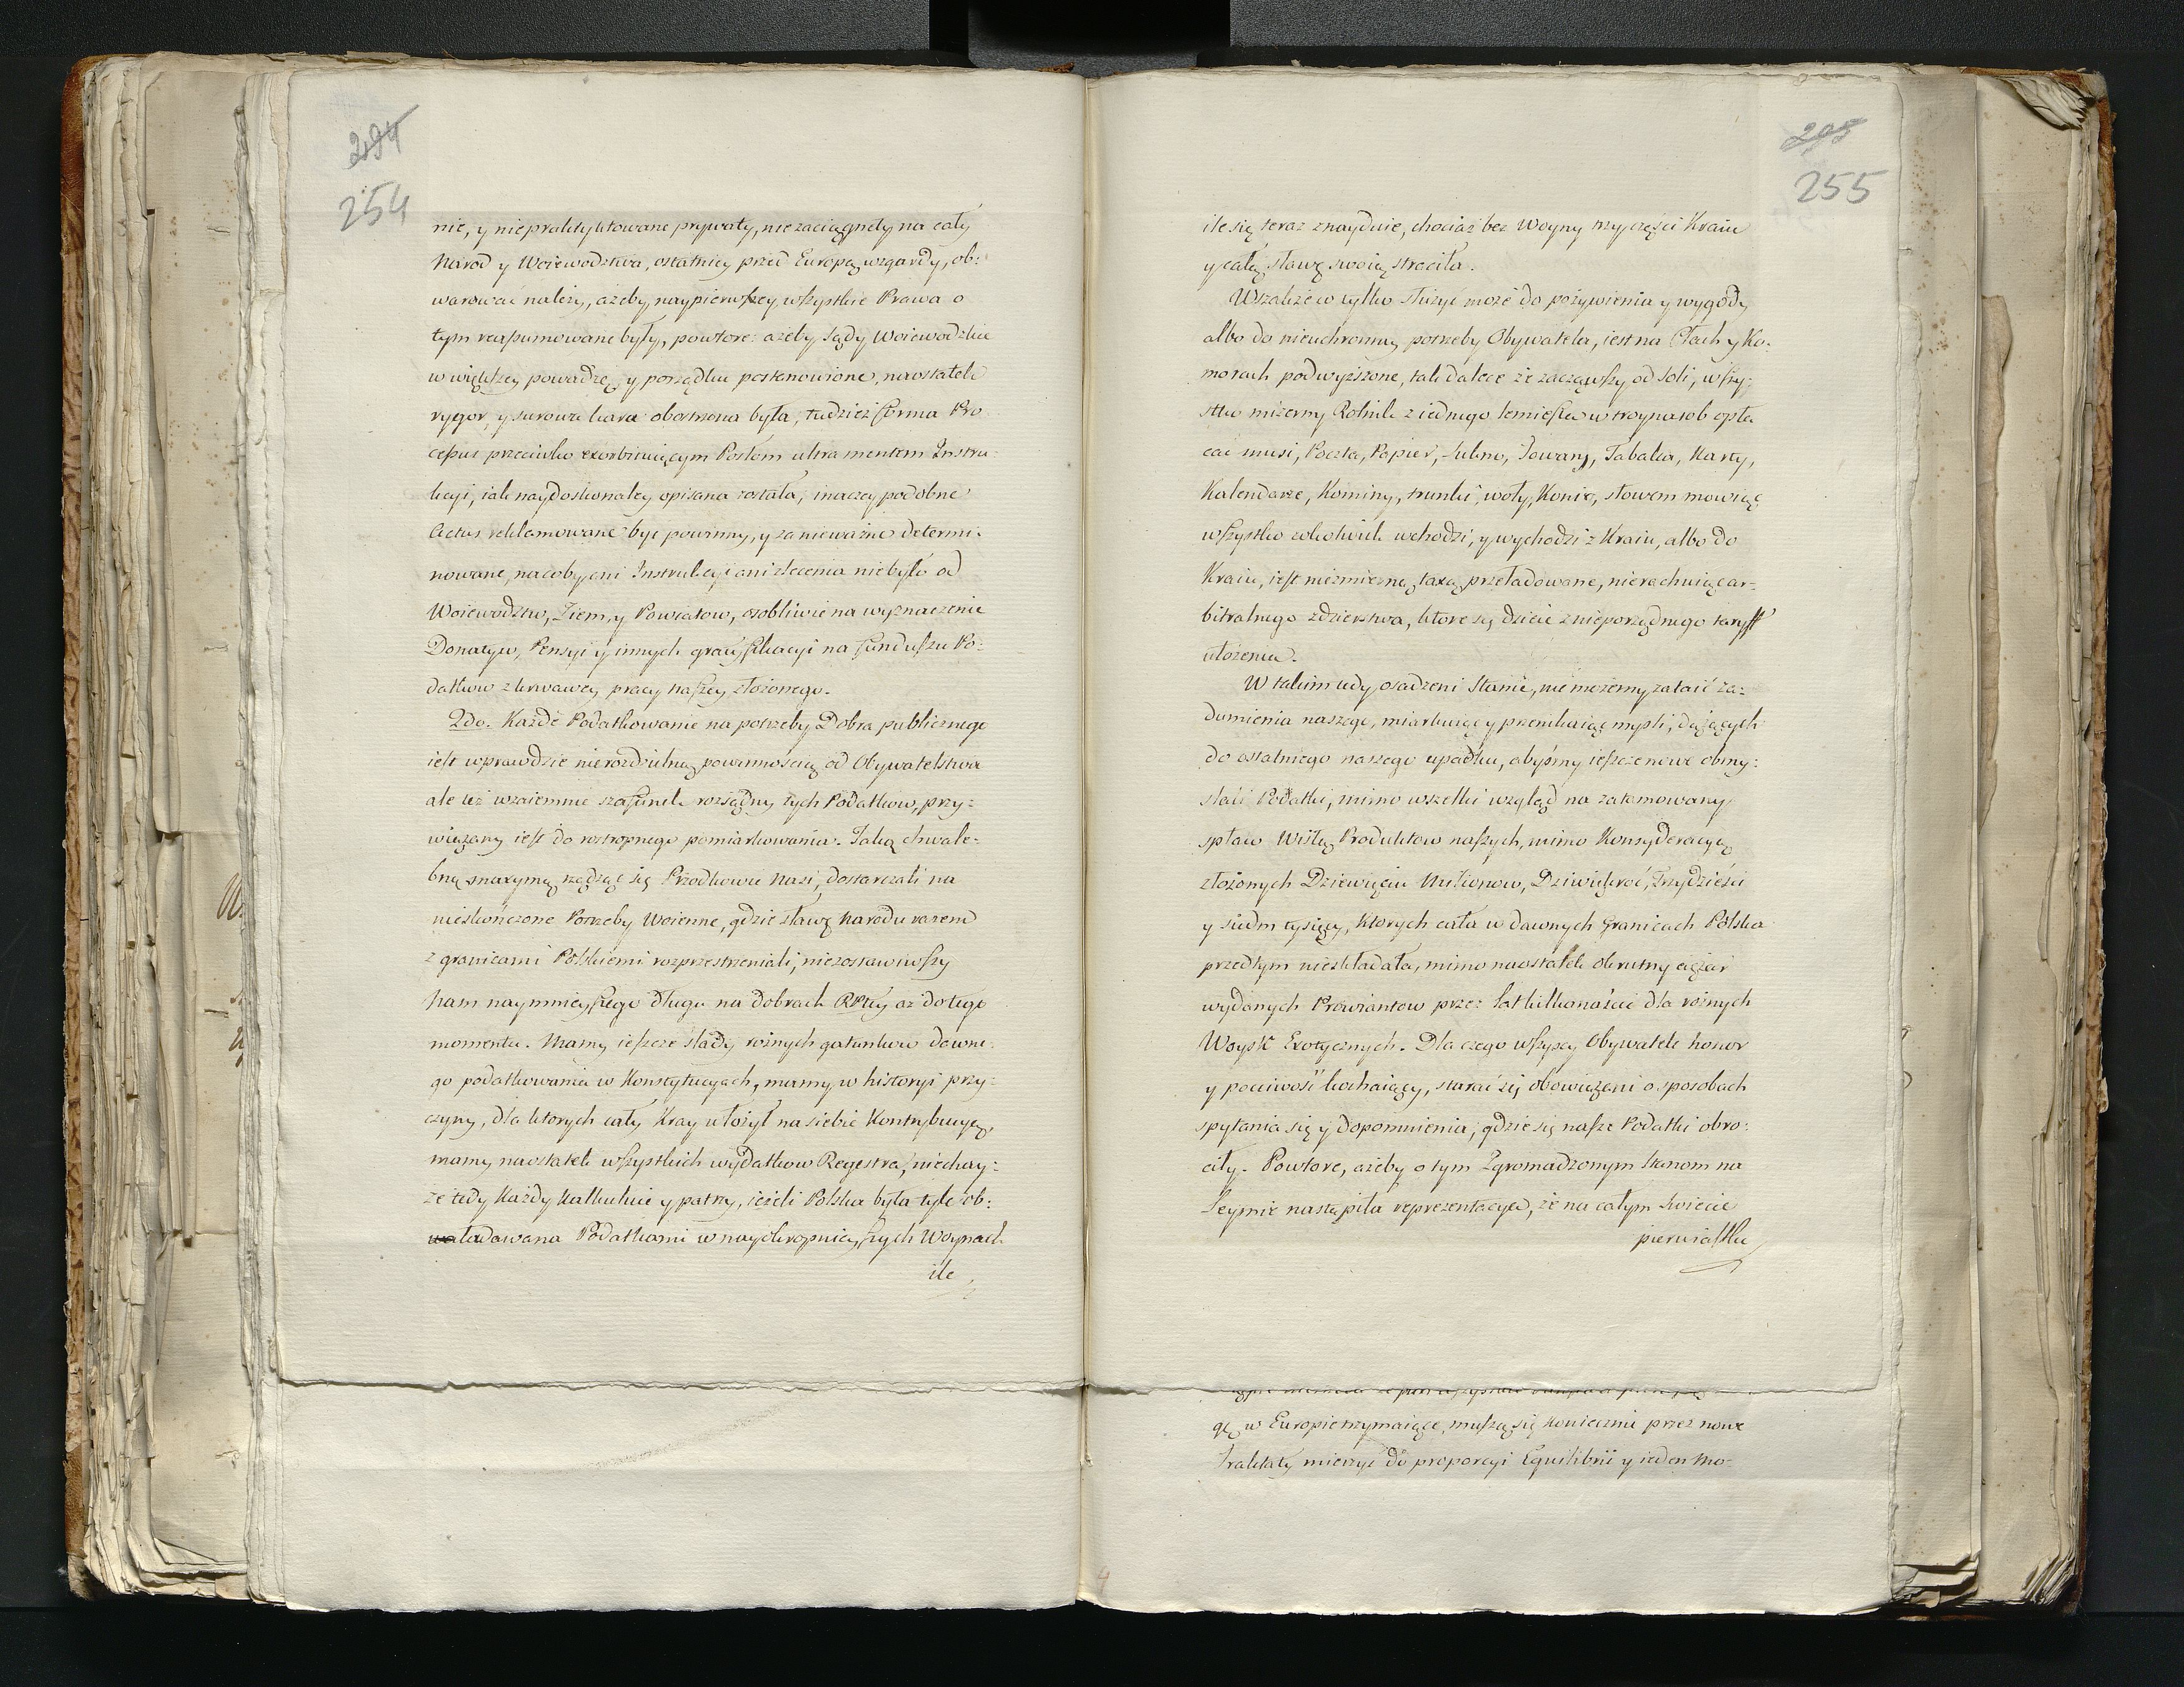 294
254
nie, y niepraktykowane prywaty, nie zaciągnęły na cały
Narod y Woiewodztwa, ostatniey przed Europą wzgardy, ob:
warować należy, ażeby naypierwszey wszystkie Prawa o
tym reassumowane były, powtore: ażeby Sądy Woiewodzkie
w większey powadze y porządku postanowione, naostatek
rygor, y surowa kara obostrzona była, tudzież forma Pro
cessus przeciwko exorbituiącym Posłom ultra mentem Instru
kcyi, iak naydoskonaley opisana została, inaczey podobne
Actus reklamowane być powinny, y za nieważne determi:
nowane, na coby ani Instrukcyi ani zlecenia niebyło od
Woiewodztw, Ziem, y Powiatow, osobliwie na wyznaczenie
Donatyw, Pensyi y innych gratyfikacyi na funduszu Po:
datkow z krwawey pracy naszey złożonego.
2do. Każde Podatkowanie na potrzeby Dobra publicznego
iest wprawdzie nierozdzielną powinnością od Obywatelstwa
ale też wzaiemnie szafunek rozsądny tych Podatkow, przy:
wiązany iest do roztropnego pomiarkowania. Taką chwale:
bną maxymą rządząc się Przodkowie Nasi, dostarczali na
nieskończone Potrzeby Woienne, gdzie sławę Narodu razem
z granicami Polskiemi rozprzestrzeniali, niezostawiwszy
Nam naymnieyszego długu na Dobrach RPtey aż do tego
momentu. Mamy ieszcze ślady rożnych gatunkow dawne
go podatkowania w Konstytucyach, mamy w historyi przy:
czyny, dla ktorych cały Kray ułożył na siebie Kontrybucye,
mamy naostatek wszystkich wydatkow Regestra, niechay:
że tedy Każdy Kalkuluie y patrzy, ieżeli Polska była tyle ob:
ładowana Podatkami w nayokropnieyszych Woynach
ile
295
255
ile się teraz znayduie, chociaż bez Woyny trzy części Kraiu
y całą sławę swoią straciła.
Wszakże co tylko służyć może do pożywienia y wygody
albo do nieuchronney potrzeby Obywatela, iest na Cłach y Ko:
morach podwyższone, tak dalece że zacząwszy od Soli, wszy:
stko mizerny Rolnik z iednego lemiesza w troynasob opła
cać musi, Poczta, Papier, Sukno, Towary, Tabaka, Karty,
Kalendarze, Kominy, trunki, woły, Konie, słowem mowiąc
wszystko cokolwiek wchodzi, y wychodzi z Kraiu, albo do
Kraiu, iest niezmierną taxą przeładowane, nierachuiąc ar:
bitralnego zdzierstwa, ktore się dzieie z nieporządnego taryff
ułożenia.
W takim tedy osadzeni Stanie, nie możemy zataić za:
dumienia naszego, miarkuiąc y przenikaiąc mysli, dążących
do ostatniego naszego upadku, abyśmy ieszcze nowe obmy:
ślali Podatki, mimo wszelki wzgląd na zatamowany
spław Wisłą Produktow naszych, mimo Konsyderacyą
złożonych Dziewięciu Milionow, Dziwięćkroć, Trzydzieści
y siedm tysięcy, Ktorych cała w dawnych Granicach Polska
przedtym nieskładała, mimo naostatek okrutny ciężar
wydanych Prowiantow przez lat kilkanaście dla rożnych
Woysk Exotycznych. Dla czego wszyscy Obywatele honor
y poczciwość kochaiący, starać się obowiązani o sposobach
spytania się y dopomnienia, gdzie się nasze Podatki obro:
ciły. Powtore, ażeby o tym Zgromadzonym Stanom na
Seymie nastąpiła reprezentacya, że na całym świecie
pierwiastku
gę w Europie trzymaiące, muszą się koniecznie przez nowe
Traktaty mierzyć do proporcyi Equilibrii y ieden mo: